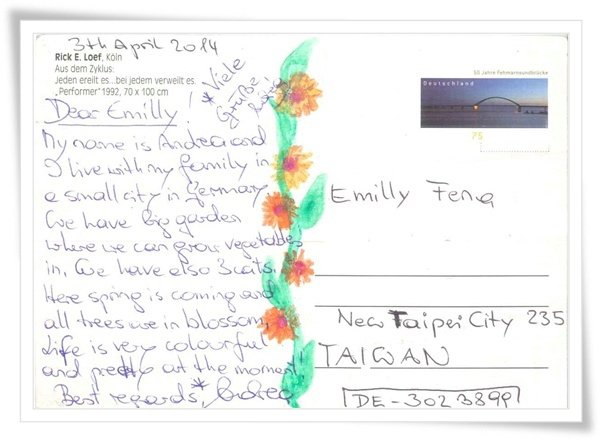 3th April 2014
Rick E. Loef, Köln
Aus dem Zyklus:
Jeden ereilt es...bei jedem verweilt es.
„Performer“ 1992, 70 x 100 cm
* Viele
Grüße
Dear Emilly!
My name is Andrea and
I live with my family in
a small city in Germany
We have big garden
where we can grow vegetables
in. We have also 3 cats.
Here spring is coming and
all trees are in blossom,
Life is very colourful
and pretty at the moment!
Best regards * Andrea
50 Jahre Fehmarnsundbrücke
Deutschland
75
Emilly Feng
New Taipei City 235
TAIWAN
DE-3023899